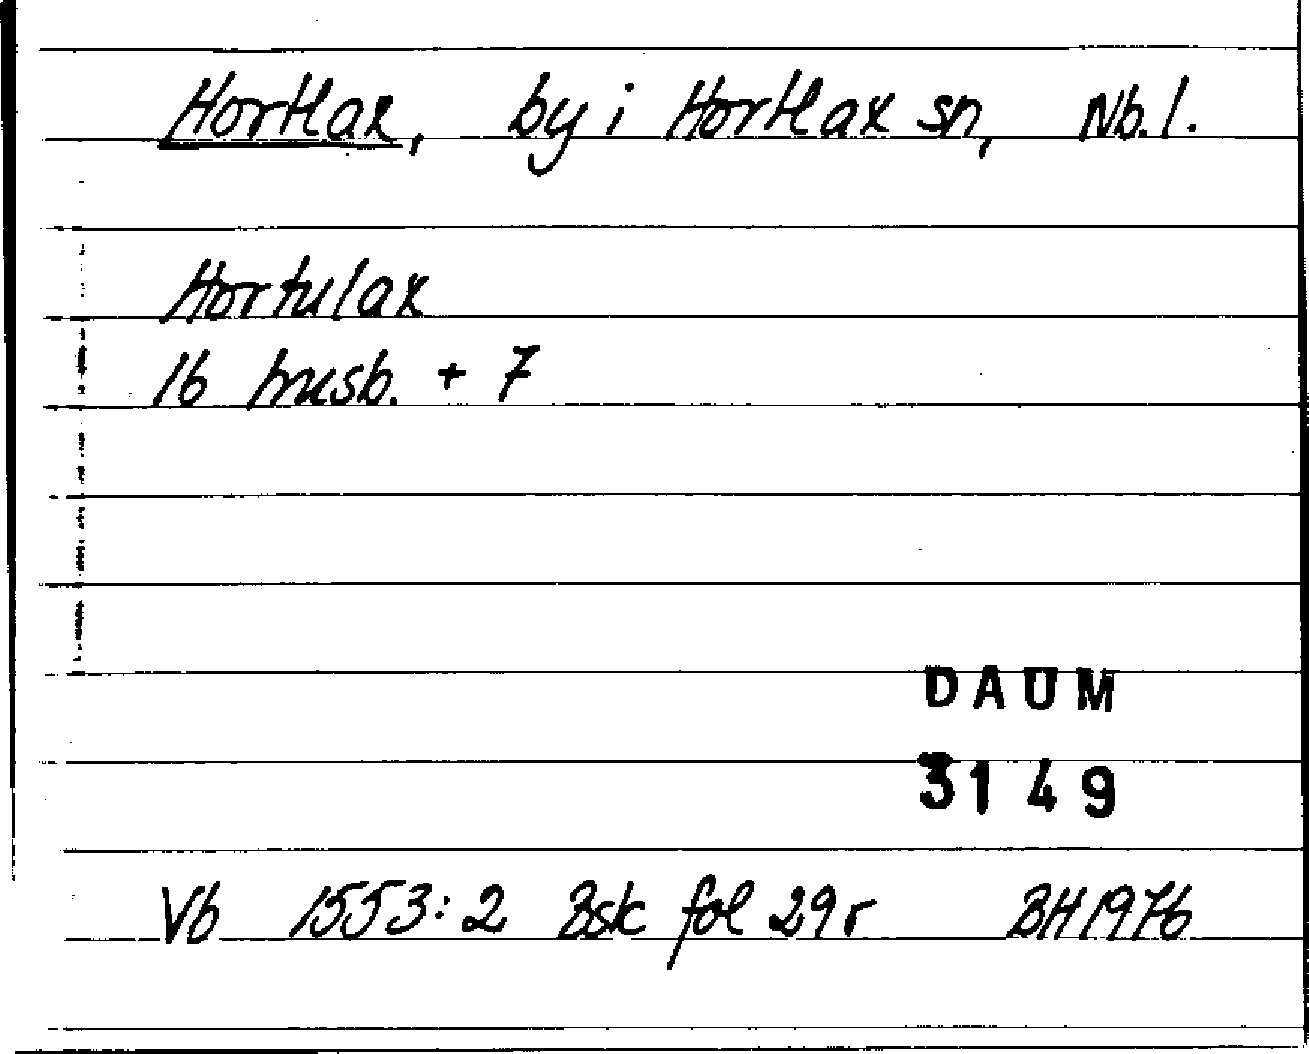 Hortlax, by i Hortlax sn, Nb.l.
Hortulax
16 husb. + 7
DAUM
3149
Vb 1553:2 Bsk fol 29r BH 1976